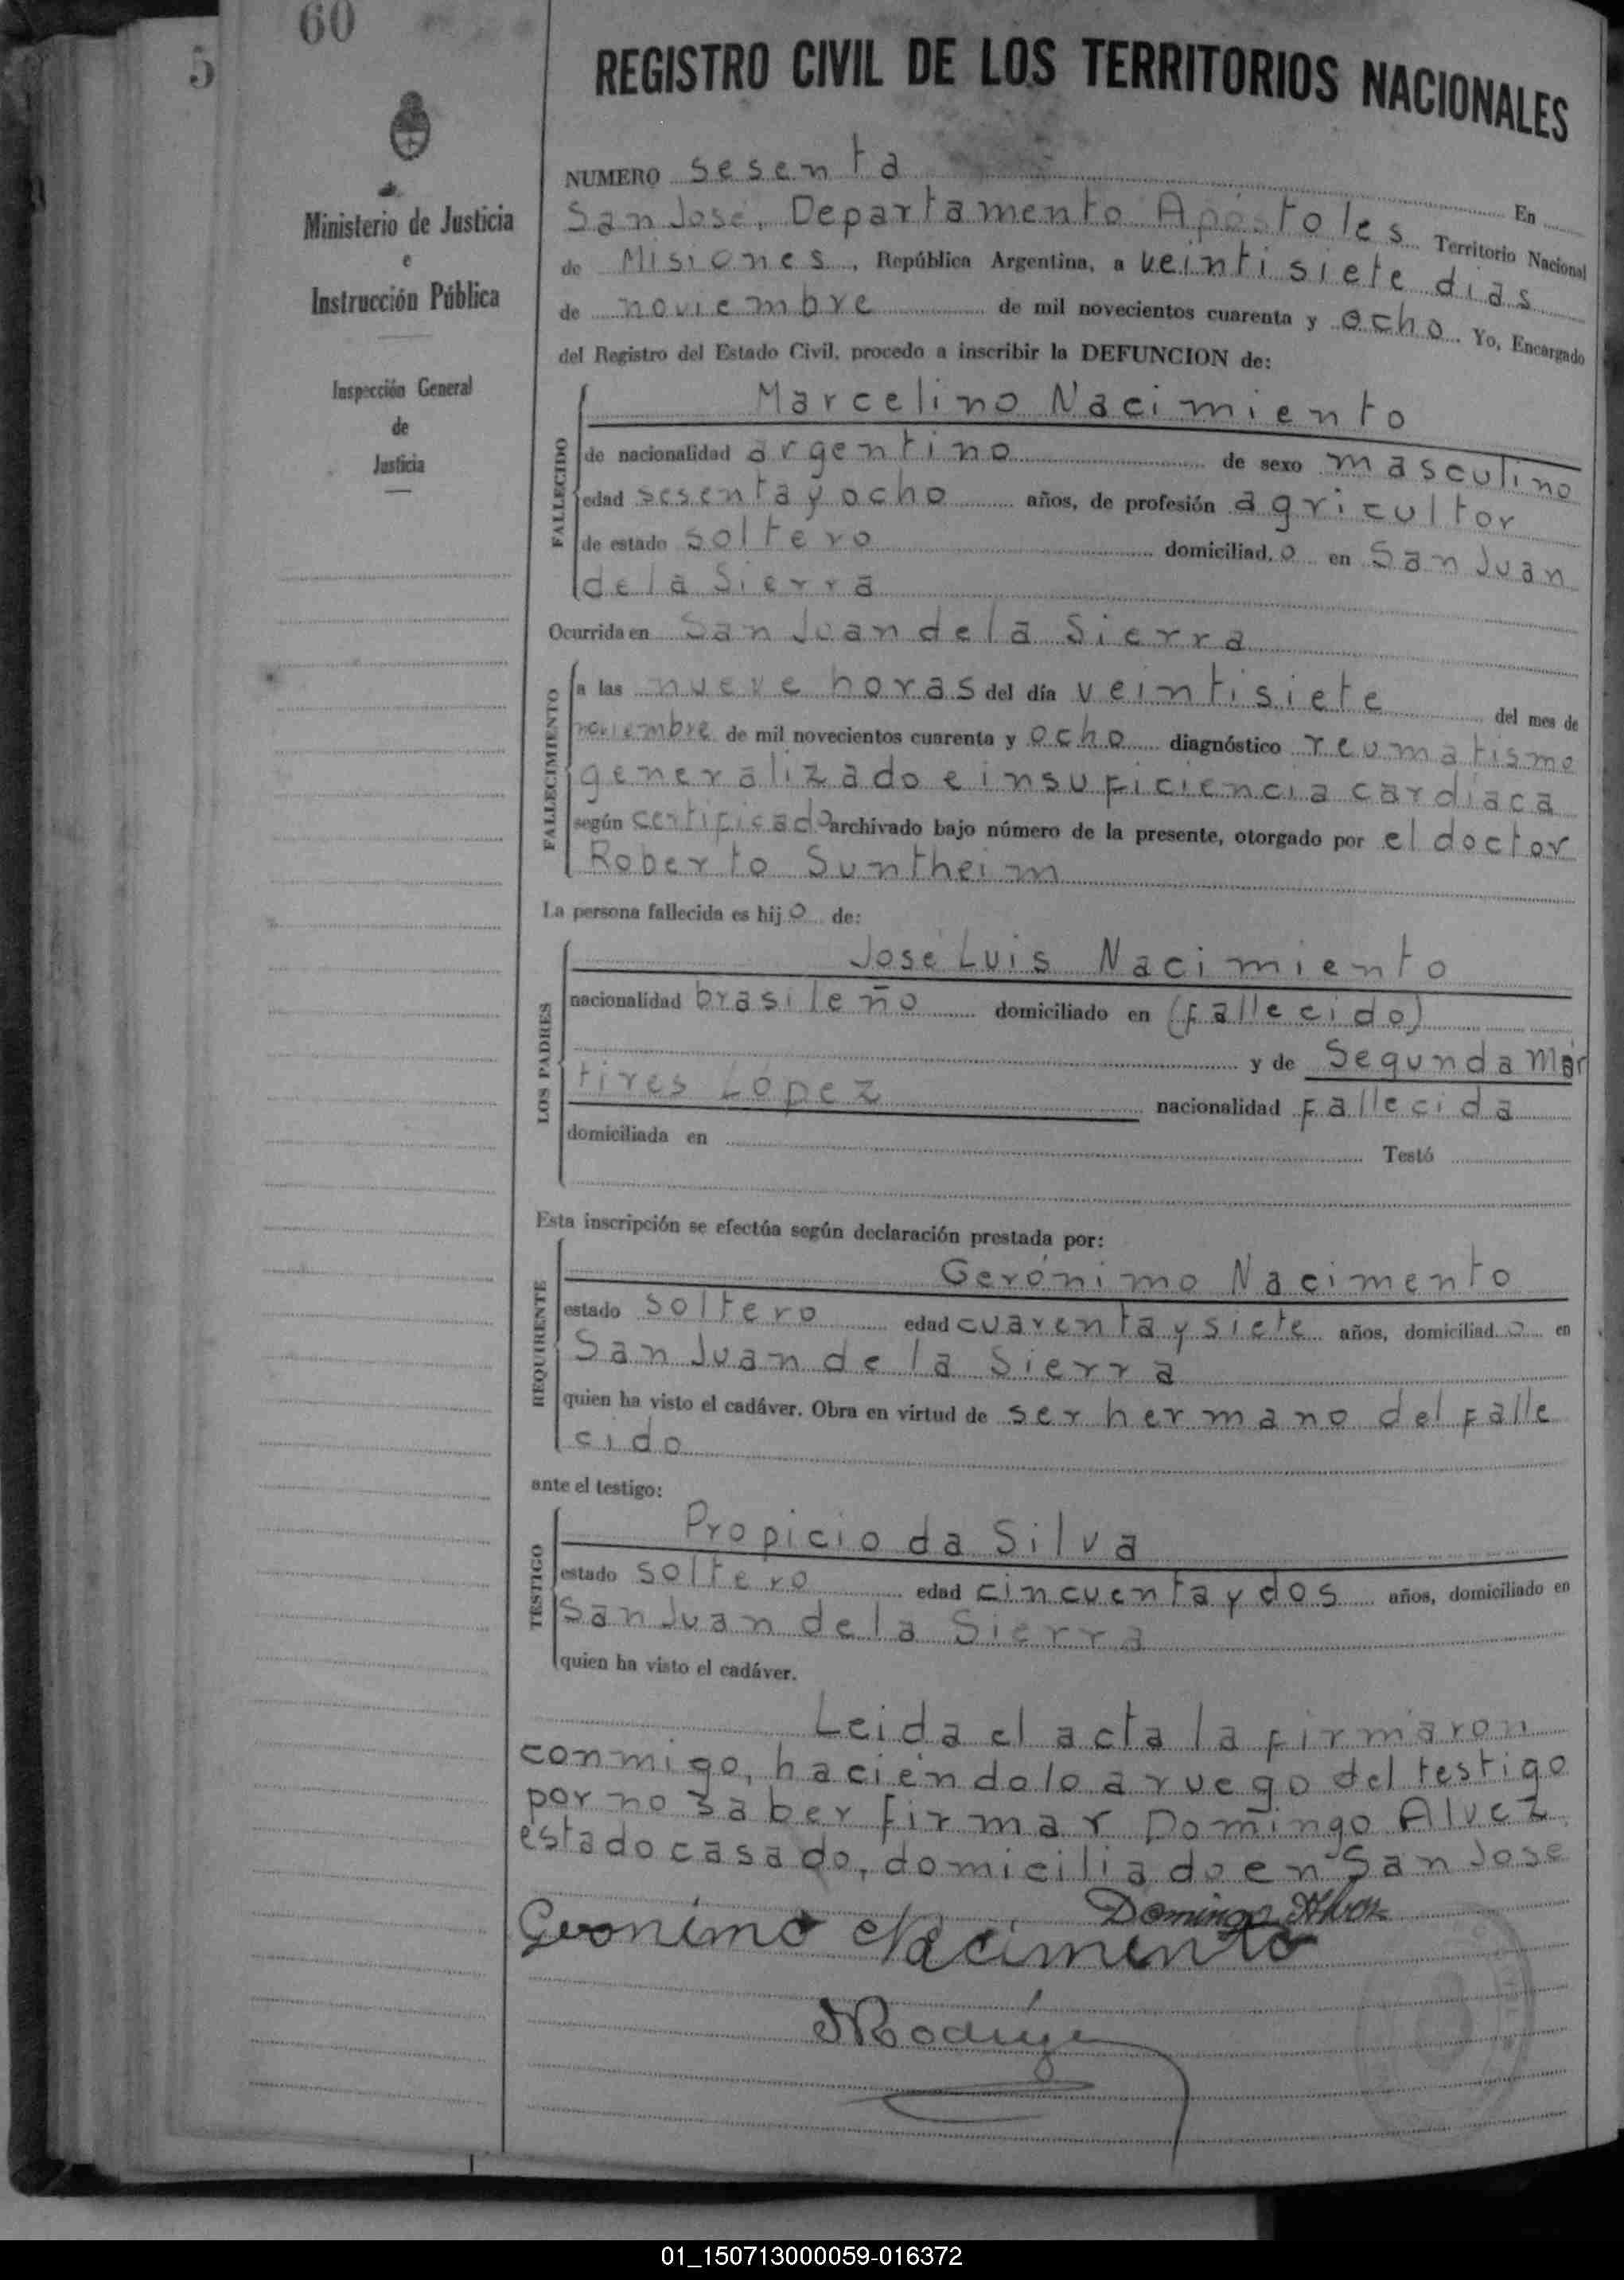 60
5
REGISTRO CIVIL DE LOS TERRITORIOS NACIONALES
Ministerio de Justicia
e
Instrucción Pública
Inspección General
de
Justicia
NUMERO sesenta En
San José, Departamento Apóstoles Territorio Nacional
de Misiones, República Argentina, a veintisiete dias
de noviembre de mil novecientos cuarenta y ocho. Yo, Encargado
del Registro del Estado Civil, procedo a inscribir la DEFUNCION de:
FALLECIDO
Marcelino Nacimiento
de nacionalidad argentino de sexo masculino
edad sesenta y ocho años, de profesión agricultor
de estado soltero domiciliad.o en San Juan
de la Sierra
Ocurrida en San Juan de la Sierra
FALLECIMIENTO
a las nueve horas del día veintisiete del mes de
noviembre de mil novecientos cuarenta y ocho diagnóstico reumatismo
generalizado e insuficiencia cardiaca
según certificado archivado bajo número de la presente, otorgado por el doctor
Roberto Suntheim
La persona fallecida es hijo de:
LOS PADRES
José Luis Nacimiento
nacionalidad brasileño domiciliado en (fallecido)
y de Segunda Már
tires López nacionalidad fallecida
domiciliada en Testó
Esta inscripción se efectúa según declaración prestada por:
REQUIRENTE
Gerónimo Nacimento
estado soltero edad cuarenta y siete años, domiciliad.o en
San Juan de la Sierra
quien ha visto el cadáver. Obra en virtud de ser hermano del falle
cido
ante el testigo:
TESTIGO
Propicio da Silva
estado soltero edad cincuenta y dos años, domiciliado en
San Juan de la Sierra
quien ha visto el cadáver.
Leida el acta la firmaron
conmigo, haciéndolo a ruego del testigo
por no saber firmar Domingo Alvez
estado casado, domiciliado en San José
Domingo Alvez
Geronimo Nacimento
01_150713000059-016372